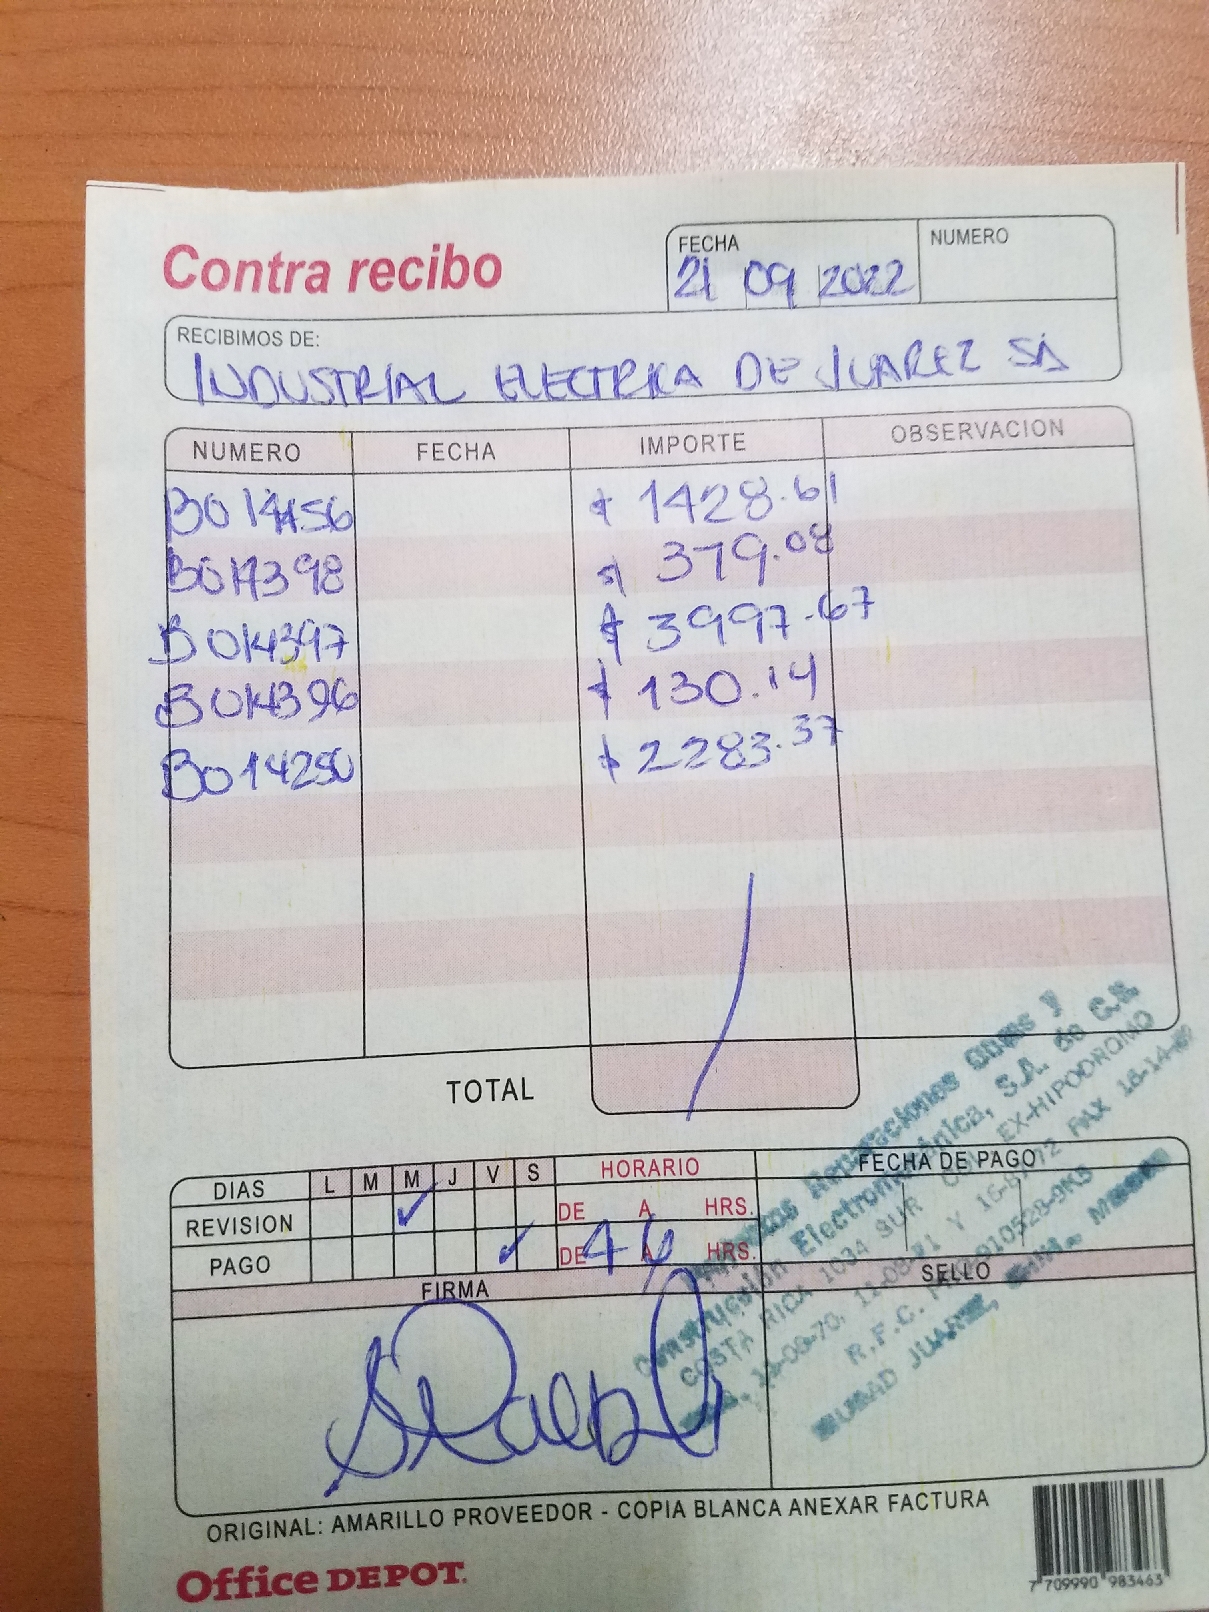 Contra recibo
FECHA
NUMERO
21 09 2022
RECIBIMOS DE:
INDUSTRIAL ELECTRICA DE JUAREZ SA
NUMERO FECHA IMPORTE OBSERVACION
B014456 $ 1428.61
B014398 $ 379.08
B014397 $ 3997.67
B014396 $ 130.14
B014250 $ 2283.37
TOTAL
DIAS L M M J V S HORARIO FECHA DE PAGO
REVISION ✓ DE A HRS.
PAGO ✓ DE 4 A 6 HRS.
FIRMA SELLO
Reparaciones Obras y
Construcción Electromecánica, S.A. de C.V.
COSTA RICA 1034 SUR COL. EX-HIPODROMO
Y 16-81-72 FAX 16-14-
R.F.C.
CIUDAD JUAREZ, CHIH. MEXICO
ORIGINAL: AMARILLO PROVEEDOR - COPIA BLANCA ANEXAR FACTURA
Office DEPOT.
7 709990 983463